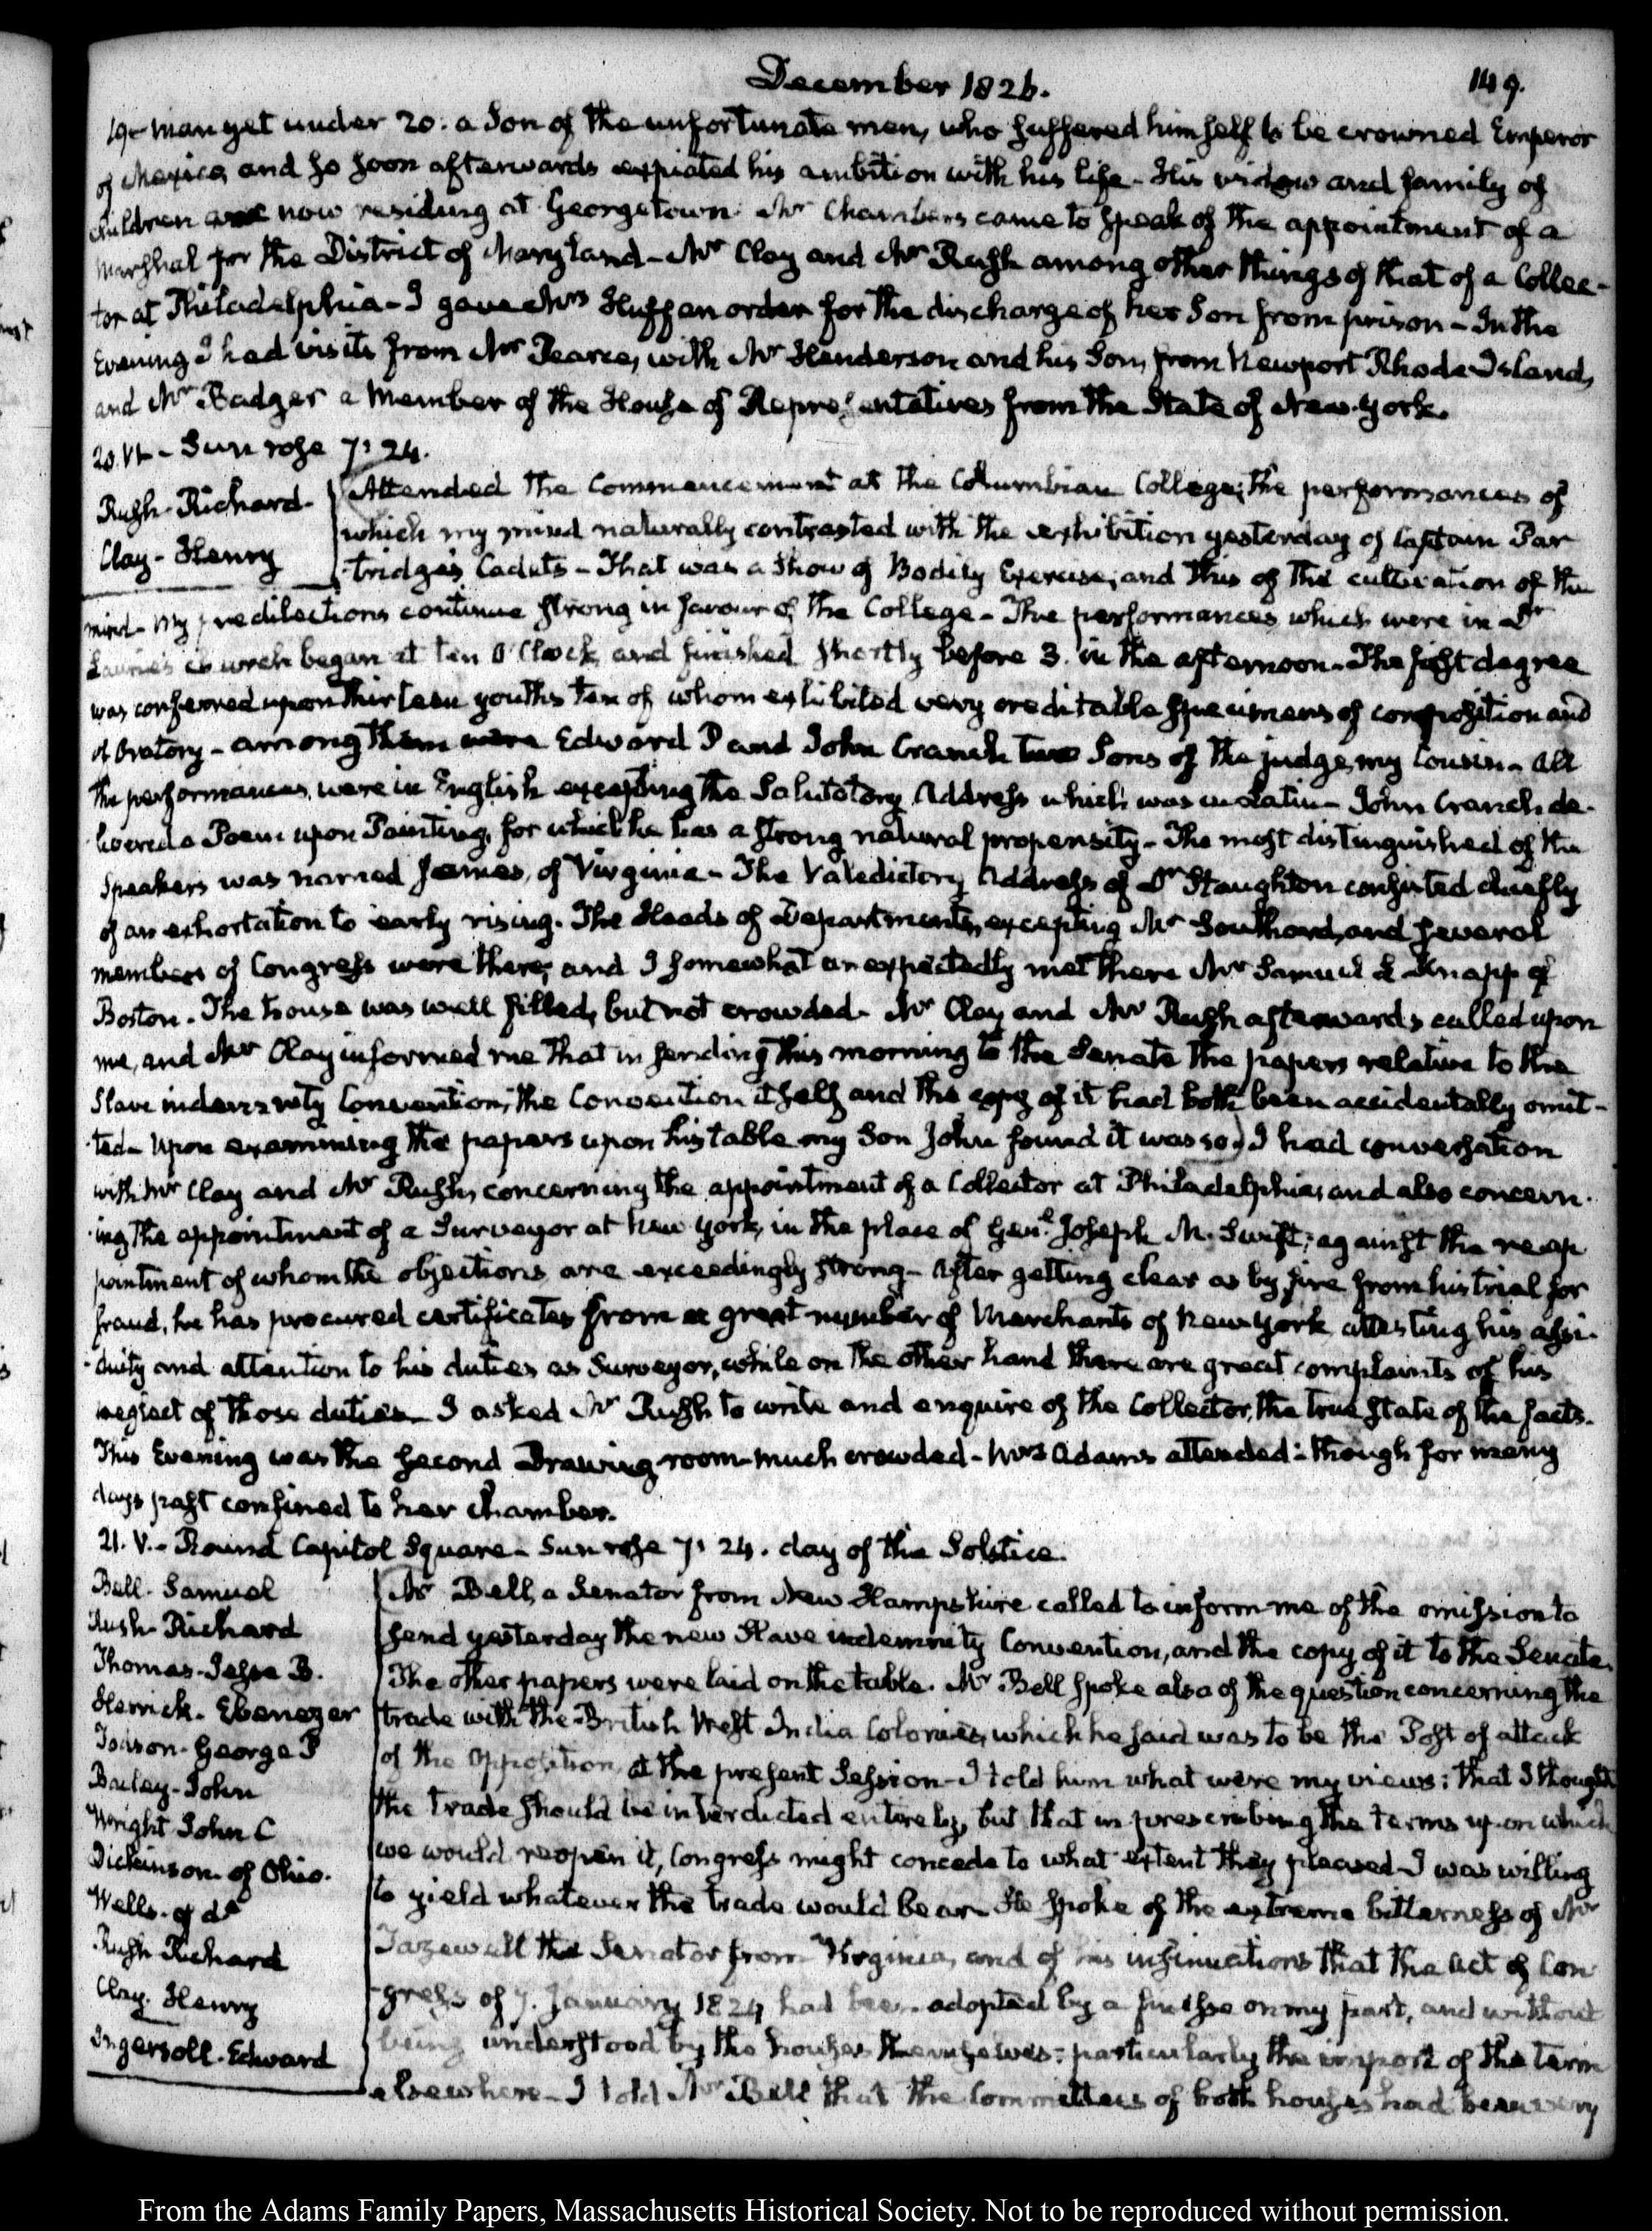 December 1826.
149.
man yet under 20. a Son of the unfortunate man, who suffered himself to be crowned Emperor
of Mexico, and so soon afterwards expiated his ambition with his life. His widow and family of
children are now residing at Georgetown. Mr Chambers came to speak of the appointment of a
Marshal for the District of Maryland – Mr Clay and Mr Rush among other things of that of a Collec-
tor at Philadelphia – I gave Mrs Huff an order for the discharge of her Son from prison – In the
Evening I had visits from Mr Pearce, with Mr Henderson and his Son, from Newport Rhode-Island,
and Mr Badger a Member of the House of Representatives from the State of New-York.
20. VI – Sun rose 7: 24.
Rush-Richard-
Clay-Henry
Attended the Commencement at the Columbian College; the performances of
which my mind naturally contrasted with the exhibition yesterday of Captain Par
tridge's Cadets – That was a show of Bodily Exercise, and this of the cultivation of the
mind – My predilections continue strong in favour of the College – The performances which were in Dr
Laurie's church began at ten O'Clock, and finished shortly before 3. in the afternoon. The first degree
was conferred upon thirteen youths ten of whom exhibited very creditable specimens of composition and
of Oratory – among them were Edward P and John Cranch two Sons of the judge, my Cousin – All
the performances, were in English excepting the Salutatory Address which was in Latin – John Cranch de-
livered a Poem upon Painting, for which he has a strong natural propensity – The most distinguished of the
Speakers was named James, of Virginia – The Valedictory Address of Dr Staughton consisted chiefly
of an exhortation to early rising. The Heads of Departments, excepting Mr Southard, and several
members of Congress were there, and I somewhat unexpectedly met there Mr Samuel L Knapp of
Boston. The house was well filled, but not crowded. Mr Clay and Mr Rush afterwards called upon
me, and Mr Clay informed me that in sending this morning to the Senate the papers relative to the
Slave indemnity Convention, the Convention itself and the copy of it had both been accidentally omit-
ted – Upon examining the papers upon his table my Son John found it was so. I had conversation
with Mr Clay and Mr Rush, concerning the appointment of a Collector at Philadelphia, and also concern-
ing the appointment of a Surveyor at New York, in the place of Genl. Joseph M. Swift; against the reap
pointment of whom the objections are exceedingly strong – After getting clear as by fire from his trial for
fraud, he has procured certificates from a great number of Merchants of New-York attesting his assi-
duity and attention to his duties as Surveyor, while on the other hand there are great complaints of his
neglect of those duties – I asked Mr Rush to write and enquire of the Collector, the true state of the facts.
This Evening was the second Drawing room – much crowded – Mrs Adams attended: though for many
days past confined to her chamber.
21. V. – Round Capitol Square – Sun rose 7: 24. day of the Solstice.
Bell-Samuel
Rush-Richard
Thomas-Jesse B.
Herrick-Ebenezer
George P
Bailey-John
Wright John C
Dickinson of Ohio.
Wells-of do
Rush Richard
Clay-Henry
Ingersoll-Edward
Mr Bell, a Senator from New Hampshire called to inform me of the omission to
send yesterday the new Slave indemnity Convention, and the copy of it to the Senate.
The other papers were laid on the table. Mr Bell spoke also of the question concerning the
trade with the British West India Colonies, which he said was to be the Post of attack
of the Opposition, at the present Session – I told him what were my views: that I thought
the trade should be interdicted entirely, but that in prescribing the terms upon which
we would reopen it, Congress might concede to what extent they pleased – I was willing
to yield whatever the trade would bear – He spoke of the extreme bitterness of Mr
Tazewell the Senator from Virginia, and of his insinuations that the Act of Con
gress of 9. January 1824 had been adopted by a finesse on my part, and without
being understood by the houses themselves: particularly the import of the term
elsewhere – I told Mr Bell that the Committees of both houses had been very
From the Adams Family Papers, Massachusetts Historical Society. Not to be reproduced without permission.